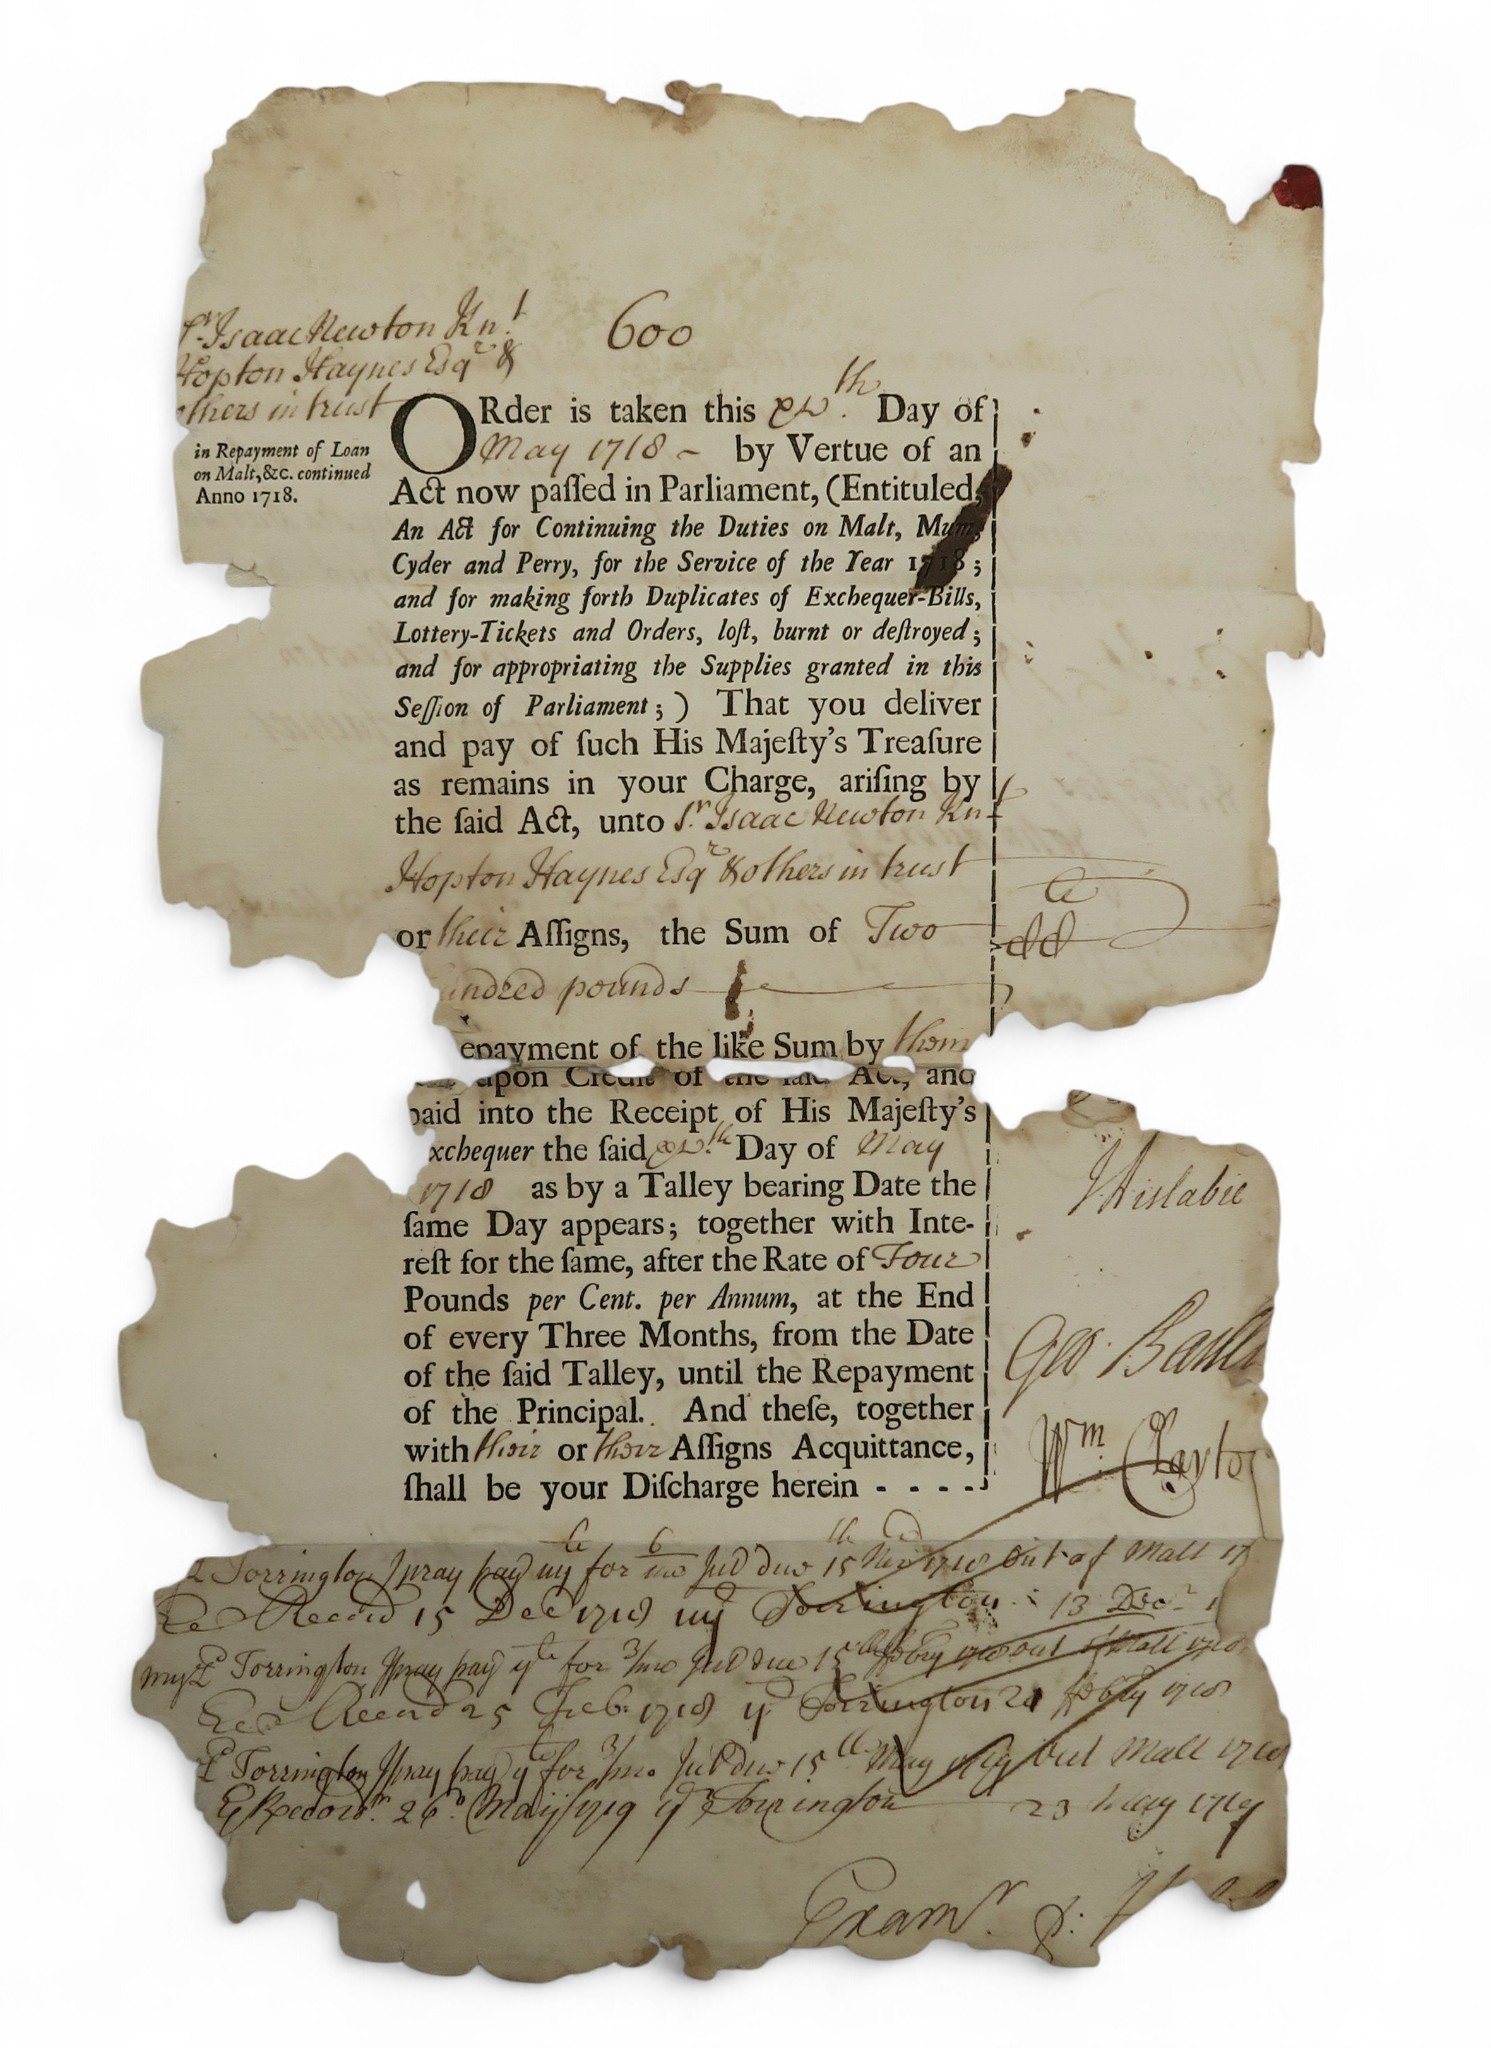 Sr. Isaac Newton Knt
Hopton Haynes Esqr &
others in trust
600
in Repayment of Loan
on Malt, &c. continued
Anno 1718.
ORder is taken this xvth. Day of
May 1718 - by Vertue of an
Act now paſſed in Parliament, (Entituled,
An Act for Continuing the Duties on Malt, Mum,
Cyder and Perry, for the Service of the Year 1718;
and for making forth Duplicates of Exchequer-Bills,
Lottery-Tickets and Orders, loſt, burnt or deſtroyed;
and for appropriating the Supplies granted in this
Seſſion of Parliament;) That you deliver
and pay of ſuch His Majeſty's Treaſure
as remains in your Charge, ariſing by
the ſaid Act, unto Sr. Isaac Newton Knt
Hopton Haynes Esqr & others in trust
or their Aſſigns, the Sum of Two
undred pounds
epayment of the like Sum by them
upon Credit of the ſaid Act, and
paid into the Receipt of His Majeſty's
xchequer the ſaid xvth. Day of May
1718 as by a Talley bearing Date the
ſame Day appears; together with Inte-
reſt for the ſame, after the Rate of Four
Pounds per Cent. per Annum, at the End
of every Three Months, from the Date
of the ſaid Talley, until the Repayment
of the Principal. And theſe, together
with their or their Aſſigns Acquittance,
ſhall be your Diſcharge herein - - - -
J Aislabie
Geo: Baill
Wm. Clayto
Torrington pray pay for 6 Int due 15th 1718 out of Malt 17
Record 15 Dec 1718 Torrington : 13 Decr 1
my Ld Torrington pray pay yte for 3/mo Int due 15th feb'ry 1718 out of Malt 1718
Record 25 Feb: 1718 Torrington 21 feb'ry 1718
Ld Torrington pray pay yte for 3/mo. Int due 15th May 1719 out Malt 1718
Record 26o May 1719 Torrington 23 May 1719
Examr. p: